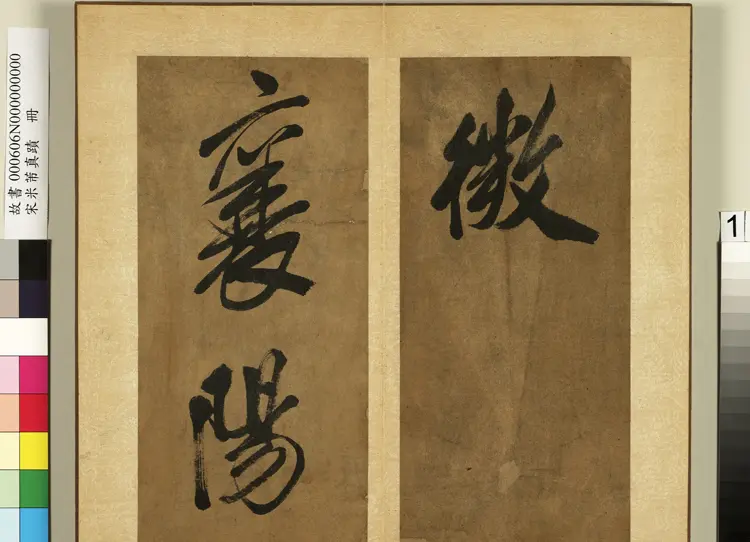 微
襄陽
故書 000606N000000000
宋米芾真蹟 冊
1